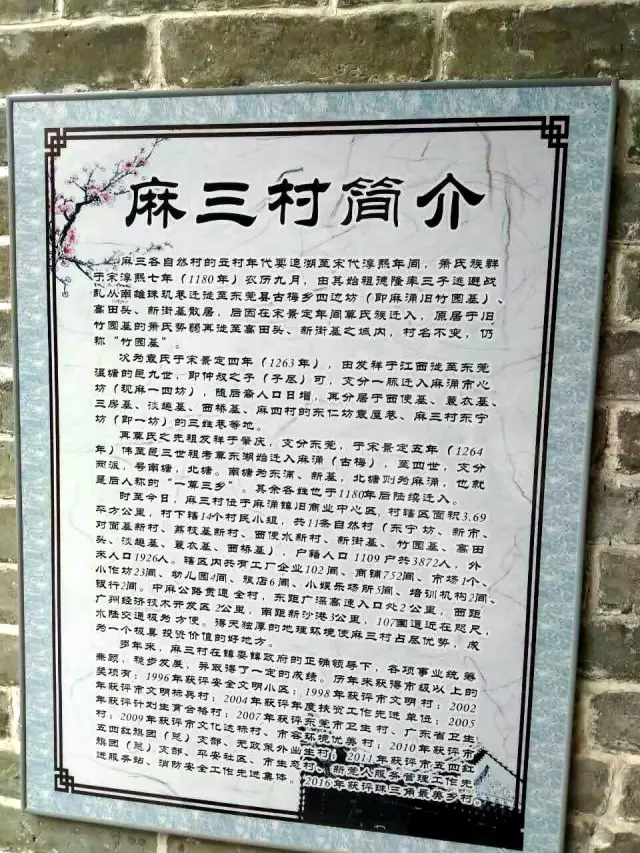 麻三村简介
麻三各自然村的立村年代要追溯至宋代淳熙年间，萧氏族群
于宋淳熙七年（1180年）农历九月，由其始祖德隆率三子逃避战
乱从南雄珠玑巷迁徙至东莞县古梅乡四边坊（即麻涌旧竹园基）、
高田头、新街基散居，后因在宋景定年间莫氏族迁入，原居于旧
竹园基的萧氏势弱再徙至高田头、新街基之域内，村名不变，仍
称“竹园基”。
次为袁氏于宋景定四年（1263年），由发祥于江西徙至东莞
温塘的邑九世，即仲叔之子（子尽）可，支分一脉迁入麻涌市心
坊（现麻一四坊），随后裔人口日增，再分居于西便基、蓑衣基、
三房基、淡趣基、西桥基、麻四村的东仁坊袁屋巷、麻三村东宁
坊（即一坊）的三姓巷等地。
再莫氏之先祖发祥于肇庆，支分东莞，于宋景定五年（1264
年）伟至邑三世祖考莫东湖始迁入麻涌（古梅），至四世，支分
两派，号南塘，北塘。南塘为东浦、新基，北塘则为麻涌，也就
是后人称的“一莫三乡”。其余各姓也于1180年后陆续迁入。
时至今日，麻三村位于麻涌镇旧商业中心区，村辖区面积3.69
平方公里，村下辖14个村民小组，共11条自然村（东宁坊、新市、
对面基新村、荔枝基新村、西便水新村、新街基、竹园基、高田
头、淡趣基、蓑衣基、西桥基），户籍人口1109户共3872人，外
来人口1926人。辖区内共有工厂企业102间、商铺752间、市场1个、
小作坊23间、幼儿园4间、旅店6间、小娱乐场所3间、培训机构2间、
银行2间。中麻公路贯通全村，东距广深高速入口处2公里，西距
广州经济技术开发区2公里，南距新沙港3公里，107国道近在咫尺，
水陆交通极为方便。得天独厚的地理环境使麻三村占尽优势，成
为一个极具投资价值的好地方。
多年来，麻三村在镇委镇政府的正确领导下，各项事业统筹
兼顾，稳步发展，并取得了一定的成绩。历年来获得市级以上的
奖项有：1996年获评安全文明小区；1998年获评市文明村；2002
年获评市文明标兵村；2004年获评年度扶贫工作先进单位；2005
年获评计划生育合格村；2007年获评东莞市卫生村、广东省卫生
村；2009年获评市文化达标村、市容环境优美村；2010年获评市
五四红旗团（总）支部、无政策外出生村；2011年获评市五四红
旗团（总）支部、平安社区、市生态村、新莞人服务管理工作先
进服务站、消防安全工作先进集体。2016年获评珠三角最美乡村。